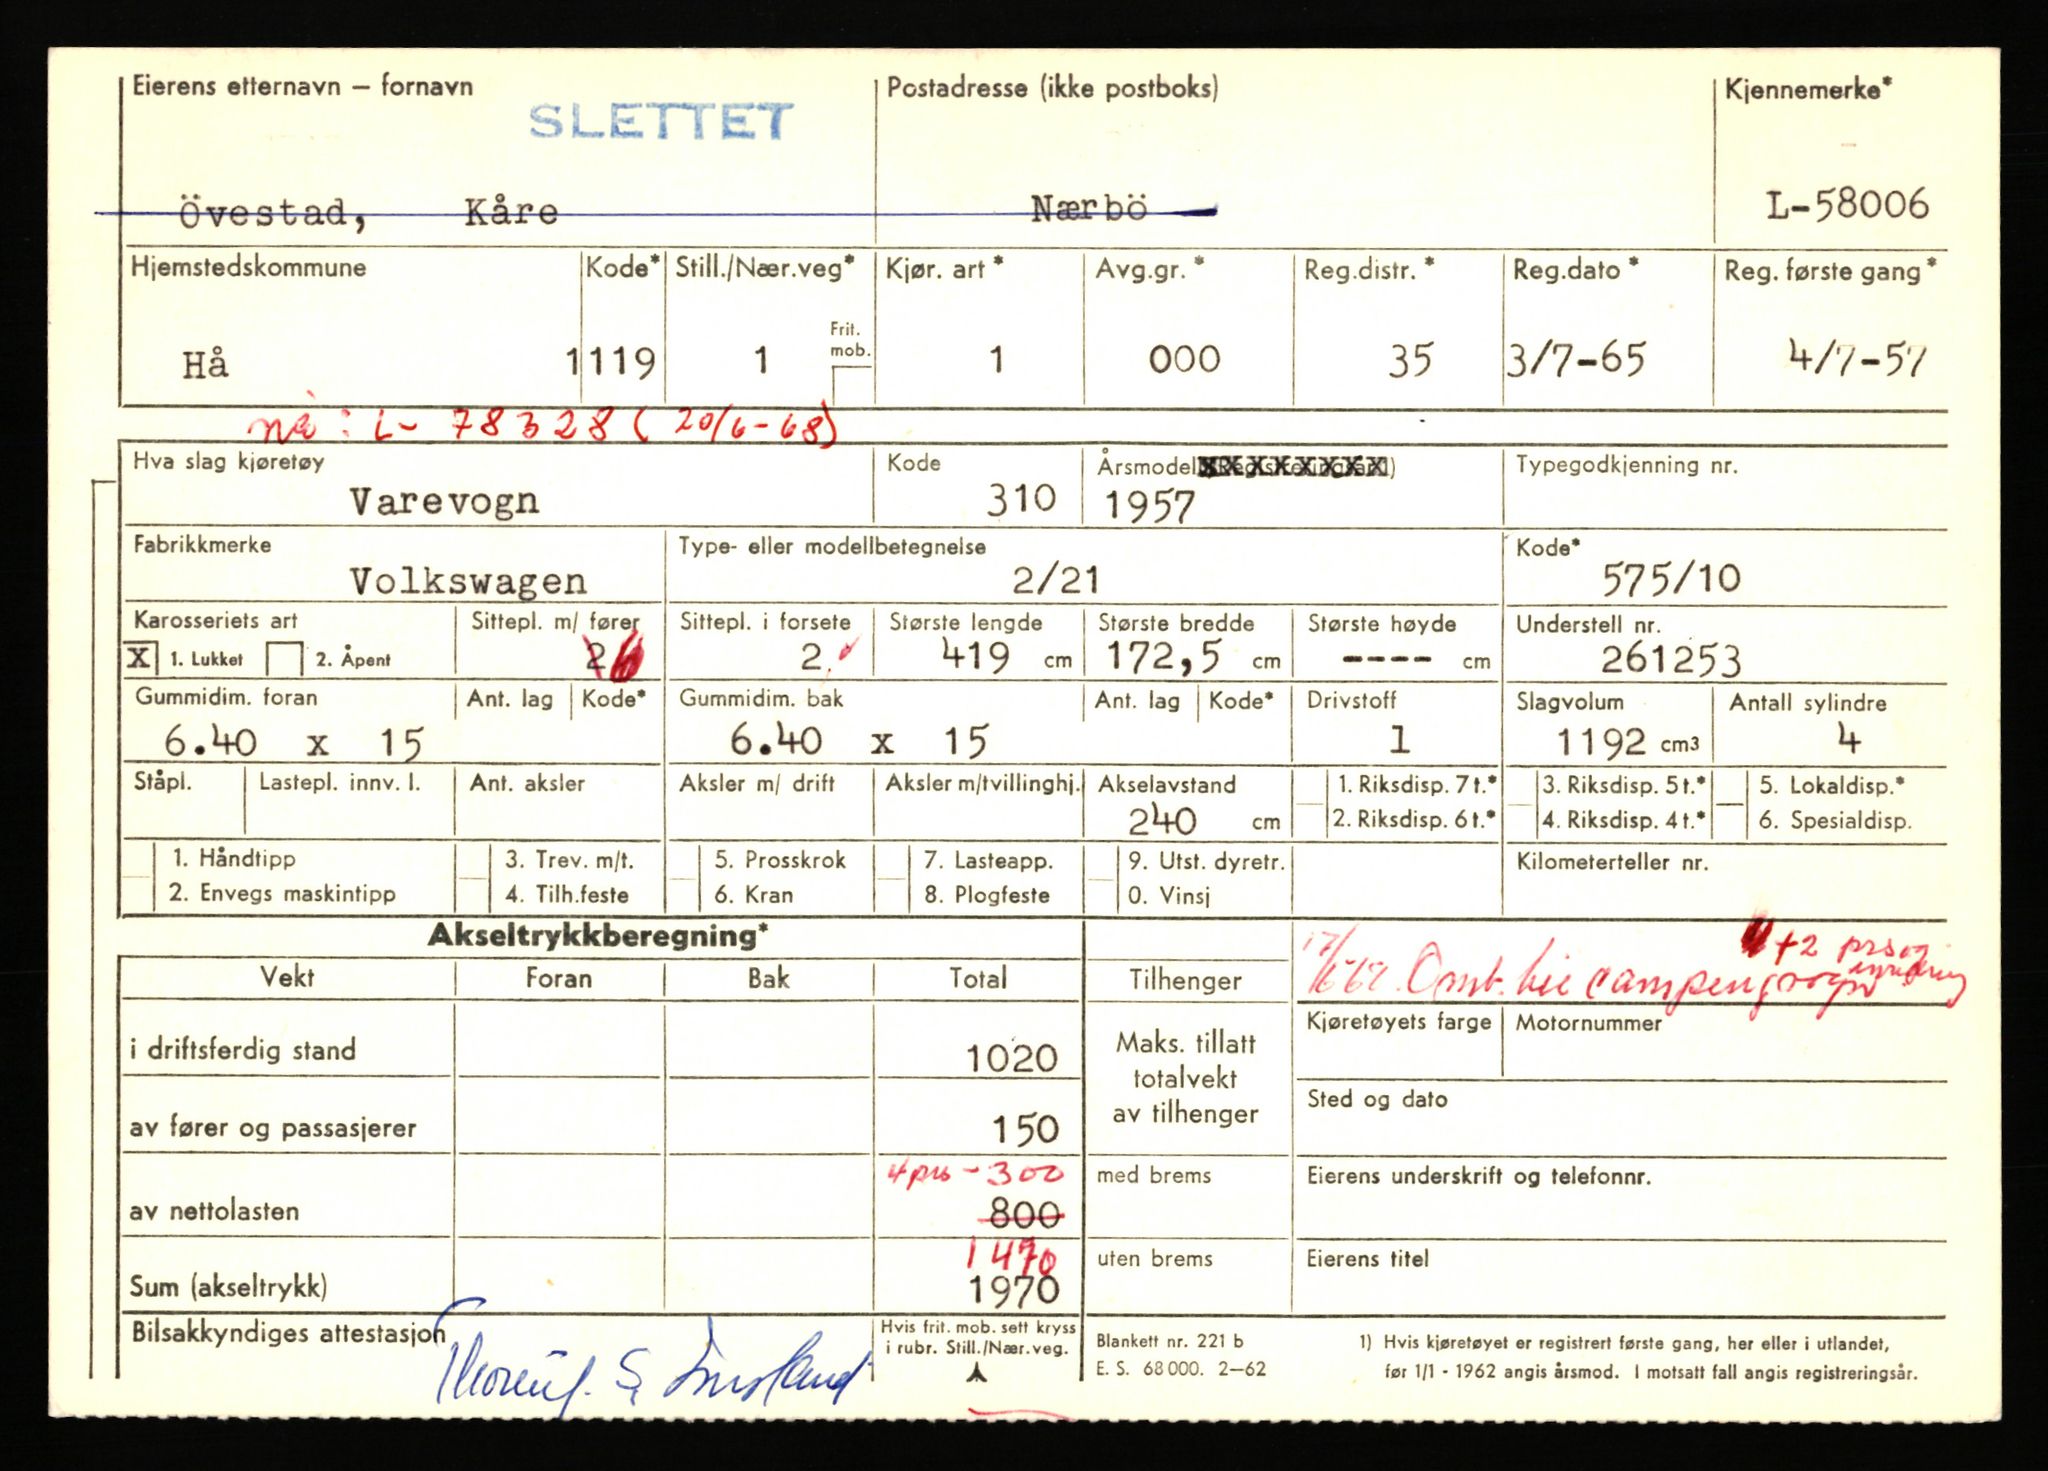 Eierens etternavn – fornavn Postadresse (ikke postboks) Kjennemerke*
SLETTET
Övestad, Kåre Nærbö L-58006
Hjemstedskommune Kode* Still./Nær.veg* Kjør. art* Avg.gr.* Reg.distr.* Reg.dato* Reg. første gang*
Frit.
mob.
Hå 1119 1 1 000 35 3/7-65 4/7-57
nå: L- 78328 (20/6-68)
Hva slag kjøretøy Kode Årsmodell Typegodkjenning nr.
Varevogn 310 1957
Fabrikkmerke Type- eller modellbetegnelse Kode*
Volkswagen 2/21 575/10
Karosseriets art Sittepl. m/ fører Sittepl. i forsete Største lengde Største bredde Største høyde Understell nr.
X 1. Lukket 2. Åpent 2 2 419 cm 172,5 cm ---- cm 261253
Gummidim. foran Ant. lag Kode* Gummidim. bak Ant. lag Kode* Drivstoff Slagvolum Antall sylindre
6.40 x 15 6.40 x 15 1 1192 cm3 4
Ståpl. Lastepl. innv. l. Ant. aksler Aksler m/ drift Aksler m/tvillinghj. Akselavstand 1. Riksdisp. 7 t.* 3. Riksdisp. 5 t.* 5. Lokaldisp.*
240 cm 2. Riksdisp. 6 t.* 4. Riksdisp. 4 t.* 6. Spesialdisp.
1. Håndtipp 3. Trev. m/t. 5. Prosskrok 7. Lasteapp. 9. Utst. dyretr. Kilometerteller nr.
2. Envegs maskintipp 4. Tilh.feste 6. Kran 8. Plogfeste 0. Vinsj
Akseltrykkberegning*
+2 prs og
Omb. til campingvogn
Vekt Foran Bak Total Tilhenger
Kjøretøyets farge Motornummer
i driftsferdig stand 1020
Maks. tillatt
totalvekt
av tilhenger
Sted og dato
av fører og passasjerer 150
4 prs - 300
med brems Eierens underskrift og telefonnr.
av nettolasten 800
1470
uten brems Eierens titel
Sum (akseltrykk) 1970
Bilsakkyndiges attestasjon
Hvis frit. mob. sett kryss
i rubr. Still./Nær.veg.
Blankett nr. 221 b
E. S. 68 000. 2–62
1) Hvis kjøretøyet er registrert første gang, her eller i utlandet,
før 1/1 - 1962 angis årsmod. I motsatt fall angis registreringsår.